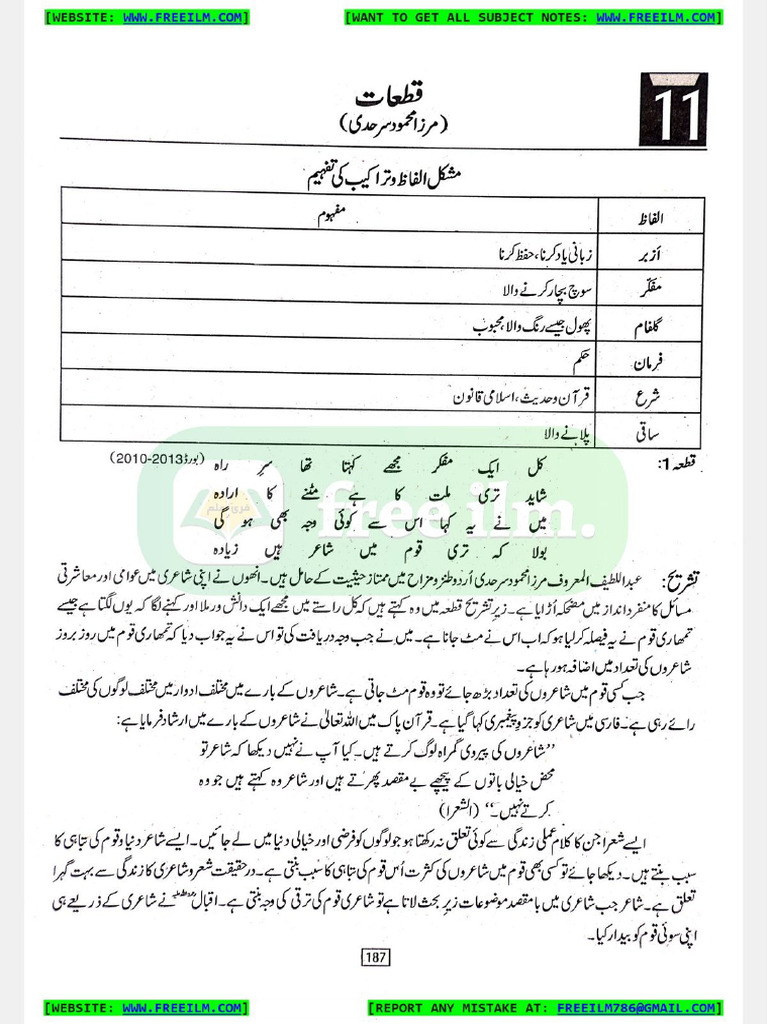 [WEBSITE: WWW.FREEILM.COM] [WANT TO GET ALL SUBJECT NOTES: WWW.FREEILM.COM]
11
قطعات
(مرزا محمود سرحدی)
مشکل الفاظ و تراکیب کی تفہیم
الفاظ مفہوم
اَزبر زبانی یاد کرنا، حفظ کرنا
مفکّر سوچ بچار کرنے والا
گلفام پھول جیسے رنگ والا، محبوب
فرمان حکم
شرع قرآن و حدیث، اسلامی قانون
ساقی پلانے والا
قطعہ 1: کل ایک مفکر مجھے کہتا تھا سرِ راہ (بورڈ 2013-2010)
شاید تری ملت کا ہے مٹنے کا ارادہ
میں نے یہ کہا اس سے کوئی وجہ بھی ہو گی
بولا کہ تری قوم میں شاعر ہیں زیادہ
free ilm.
فری علم
تشریح: عبداللطیف المعروف مرزا محمود سرحدی اُردو طنز و مزاح میں ممتاز حیثیت کے حامل ہیں۔ انھوں نے اپنی شاعری میں عوامی اور معاشرتی
مسائل کا منفرد انداز میں مضحکہ اُڑایا ہے۔ زیرِ تشریح قطعہ میں وہ کہتے ہیں کہ کل راستے میں مجھے ایک دانش ور ملا اور کہنے لگا کہ یوں لگتا ہے جیسے
تمھاری قوم نے یہ فیصلہ کر لیا ہو کہ اب اس نے مٹ جانا ہے۔ میں نے جب وجہ دریافت کی تو اس نے یہ جواب دیا کہ تمھاری قوم میں روز بروز
شاعروں کی تعداد میں اضافہ ہو رہا ہے۔
جب کسی قوم میں شاعروں کی تعداد بڑھ جائے تو وہ قوم مٹ جاتی ہے۔ شاعروں کے بارے میں مختلف ادوار میں مختلف لوگوں کی مختلف
رائے رہی ہے۔ فارسی میں شاعری کو جزوِ پیغمبری کہا گیا ہے۔ قرآن پاک میں اللہ تعالیٰ نے شاعروں کے بارے میں ارشاد فرمایا ہے:
”شاعروں کی پیروی گمراہ لوگ کرتے ہیں۔ کیا آپ نے نہیں دیکھا کہ شاعر تو
محض خیالی باتوں کے پیچھے بے مقصد پھرتے ہیں اور شاعر وہ کہتے ہیں جو وہ
کرتے نہیں۔“ (الشعرا)
ایسے شعرا جن کا کلام عملی زندگی سے کوئی تعلق نہ رکھتا ہو جو لوگوں کو فرضی اور خیالی دنیا میں لے جائیں۔ ایسے شاعر دنیا و قوم کی تباہی کا
سبب بنتے ہیں۔ دیکھا جائے تو کسی بھی قوم میں شاعروں کی کثرت اُس قوم کی تباہی کا سبب بنتی ہے۔ در حقیقت شعر و شاعری کا زندگی سے بہت گہرا
تعلق ہے۔ شاعر جب شاعری میں با مقصد موضوعات زیرِ بحث لاتا ہے تو شاعری قوم کی ترقی کی وجہ بنتی ہے۔ اقبال نے شاعری کے ذریعے ہی
اپنی سوئی قوم کو بیدار کیا۔
187
[WEBSITE: WWW.FREEILM.COM] [REPORT ANY MISTAKE AT: FREEILM786@GMAIL.COM]